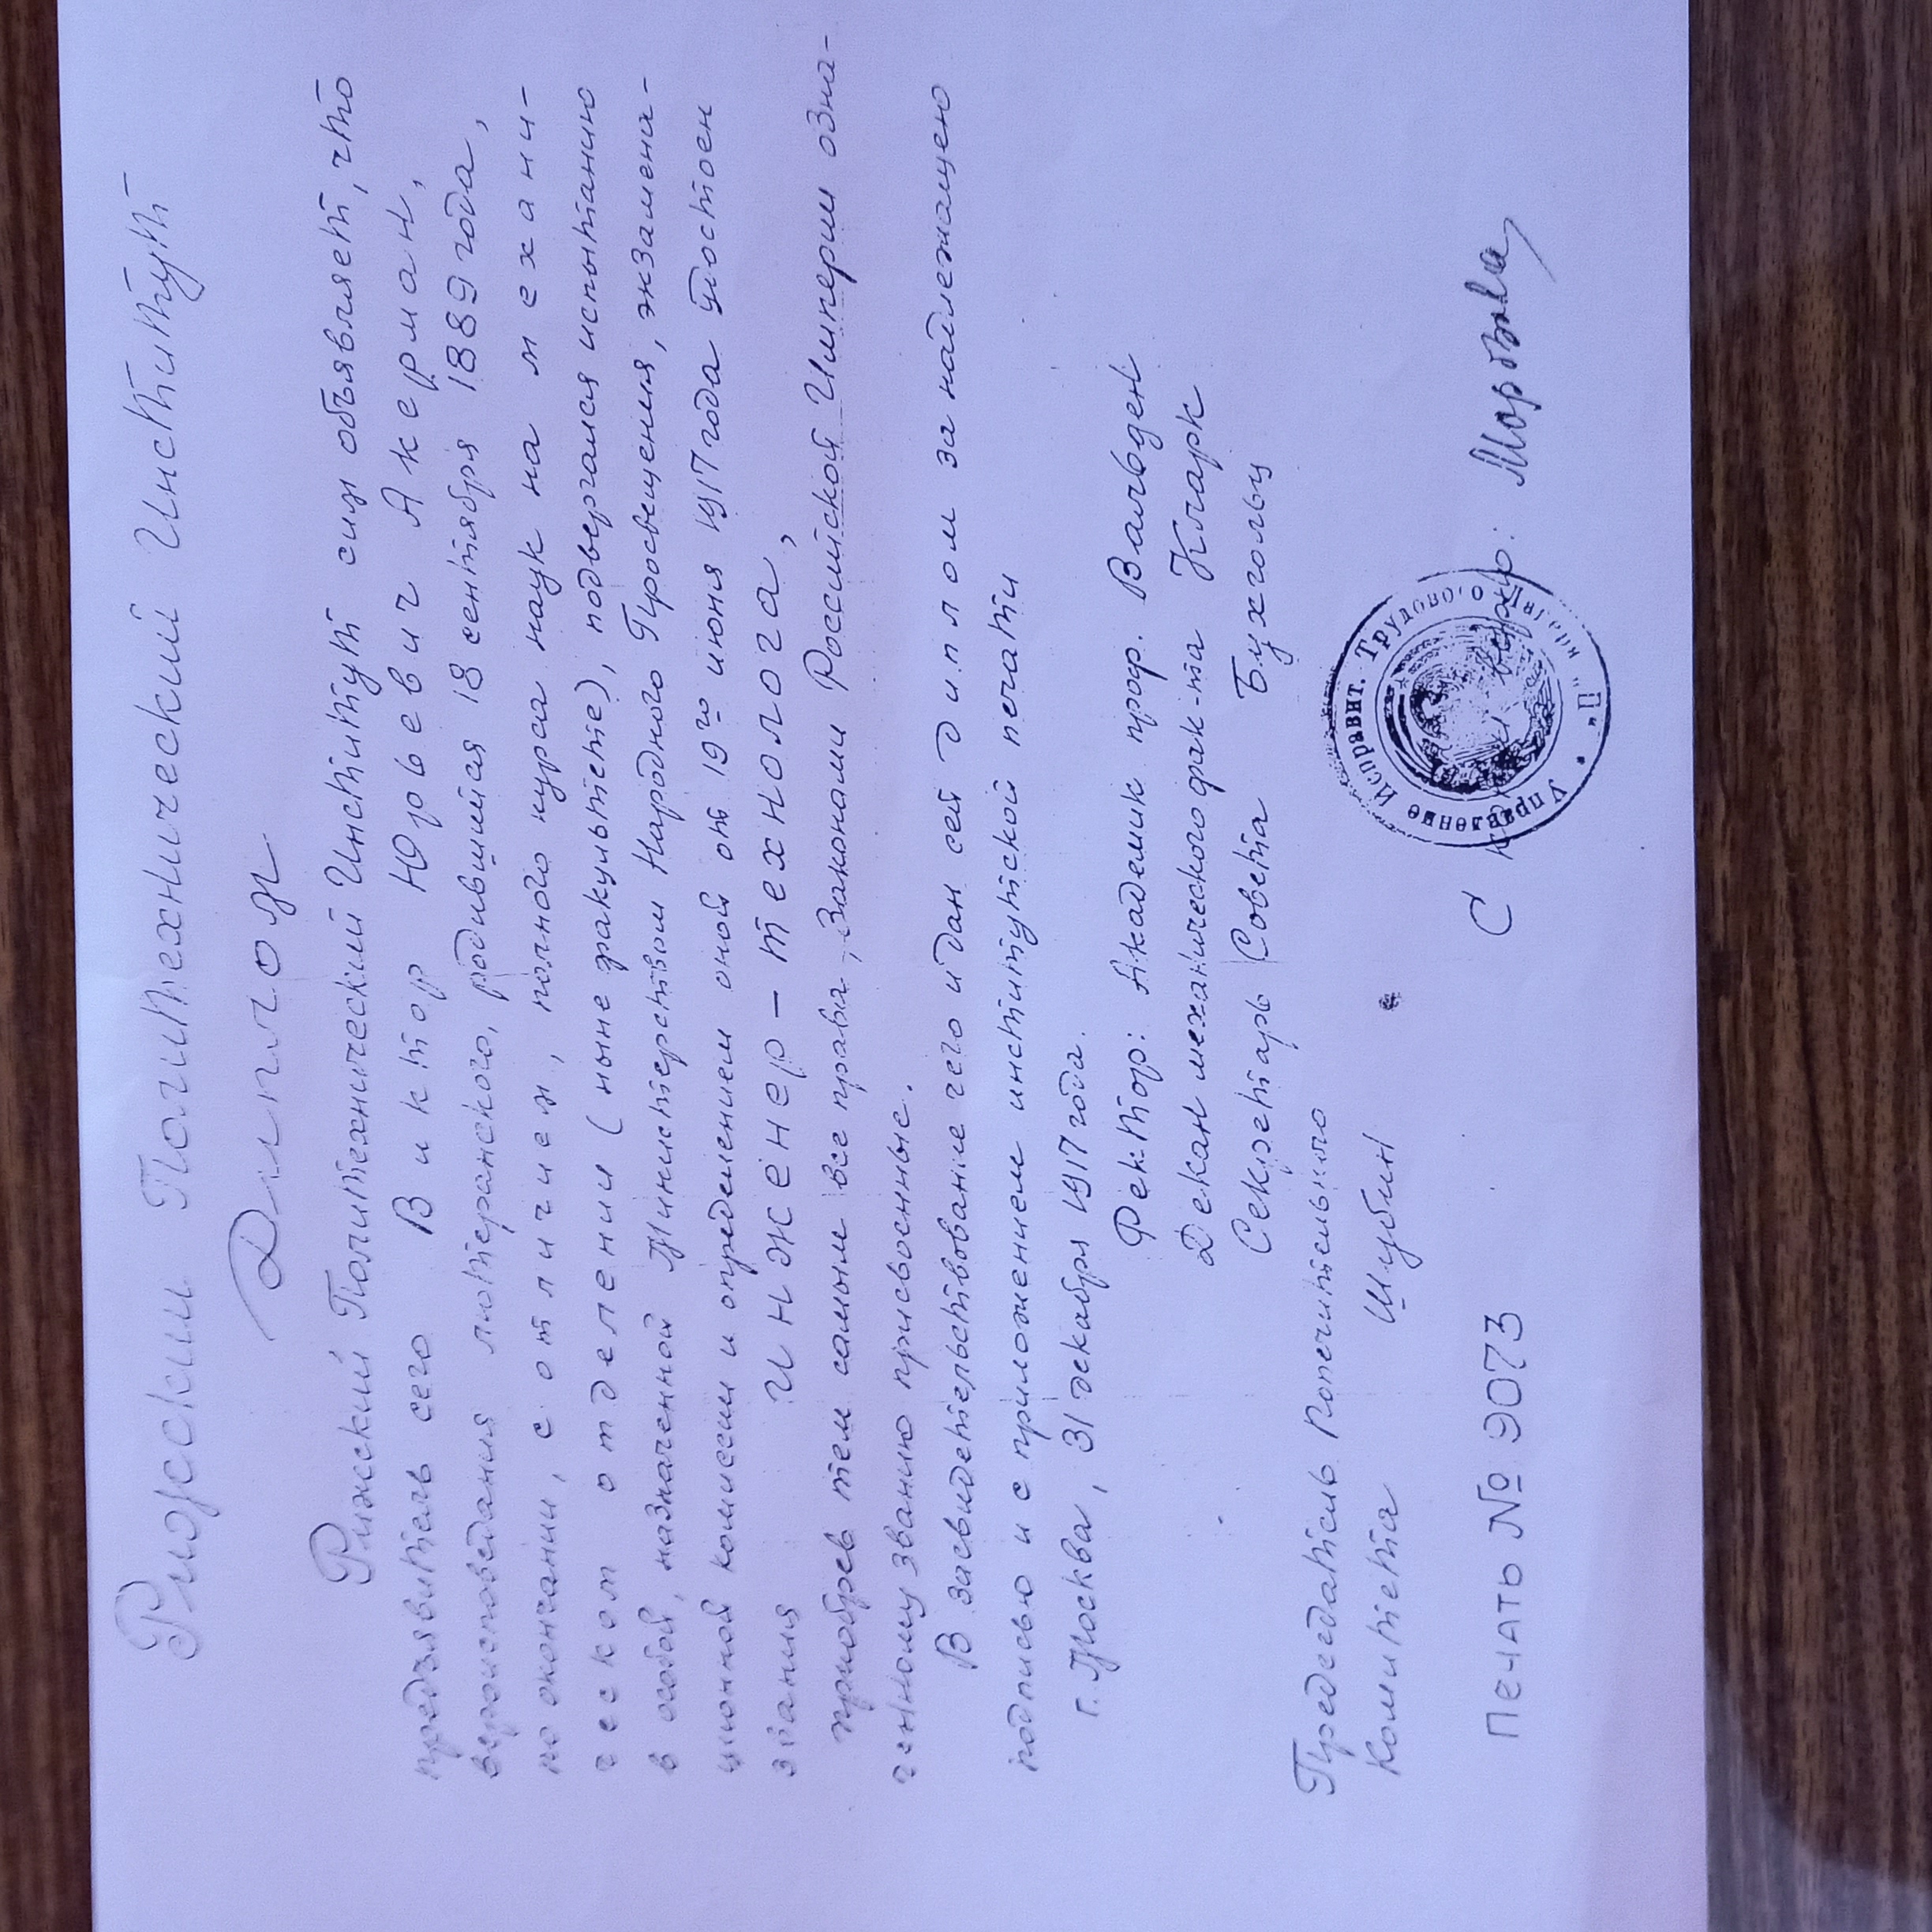 Рижский Политехнический Институт
Диплом
Рижский Политехнический Институт сим объявляет, что
предъявитель сего Виктор Юрьевич Акерман,
вероисповедания лютеранского, родившийся 18 сентября 1889 года,
по окончании, с отличием, полного курса наук на механи-
ческом отделении (ныне факультете), подвергался испытанию
в особой, назначенной Министерством Народного Просвещения, экзамена-
ционной комиссии и определением оной от 19го июня 1917 года удостоен
звания инженер-технолога,
приобрев тем самым все права, Законами Российской Империи озна-
ченному званию присвоенные.
В засвидетельствование чего и дан сей диплом за надлежащею
подписью и с приложением институтской печати
г. Москва, 31 декабря 1917 года.
Ректор: Академик проф. Вальден
Декан механического фак-та Кларк
Секретарь Совета Бухгольц
Председатель Попечительного
Комитета Шубин
Управление Исправит. Трудово-о
"П"
Печать № 9073 С верно: